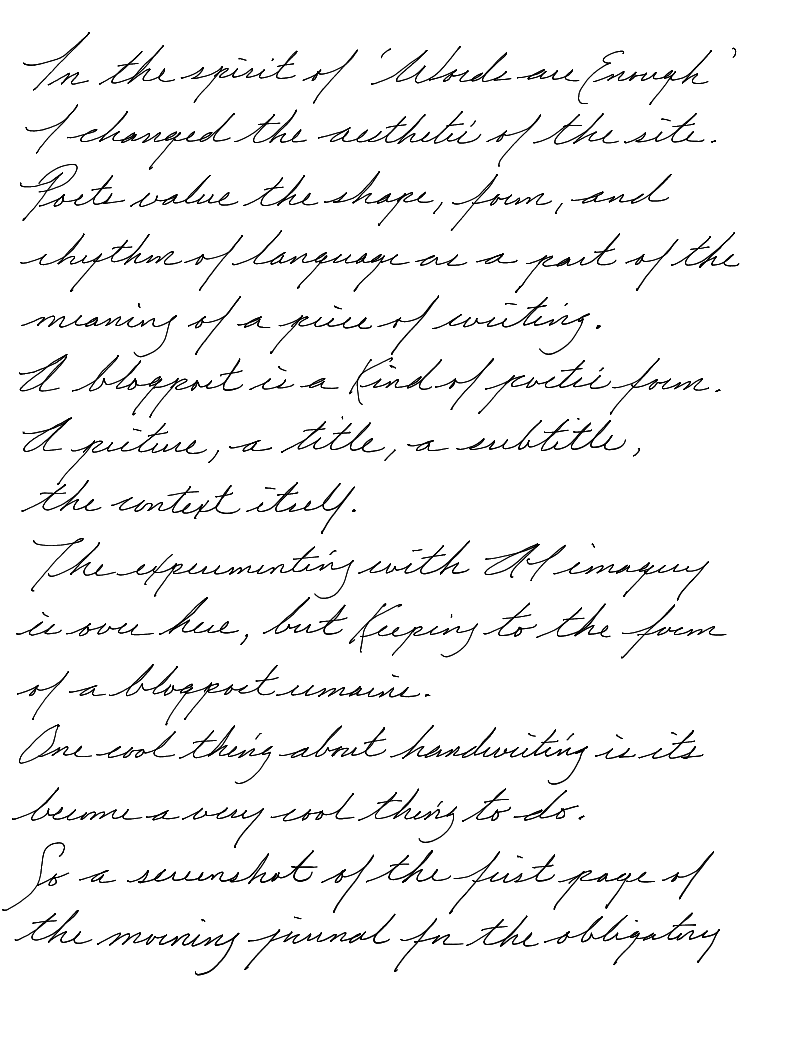 In the spirit of 'Words are Enough'
I changed the aesthetic of the site.
Poets value the shape, form, and
rhythm of language as a part of the
meaning of a piece of writing.
A blogpost is a kind of poetic form.
A picture, a title, a subtitle,
the context itself.
The experimenting with AI imagery
is over here, but keeping to the form
of a blogpost remains.
One cool thing about handwriting is its
become a very cool thing to do.
So a screenshot of the first page of
the morning journal for the obligatory